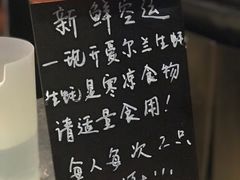 新鲜空运
一现开爱尔兰生蚝
生蚝是寒凉食物
请适量食用！
每人每次二只